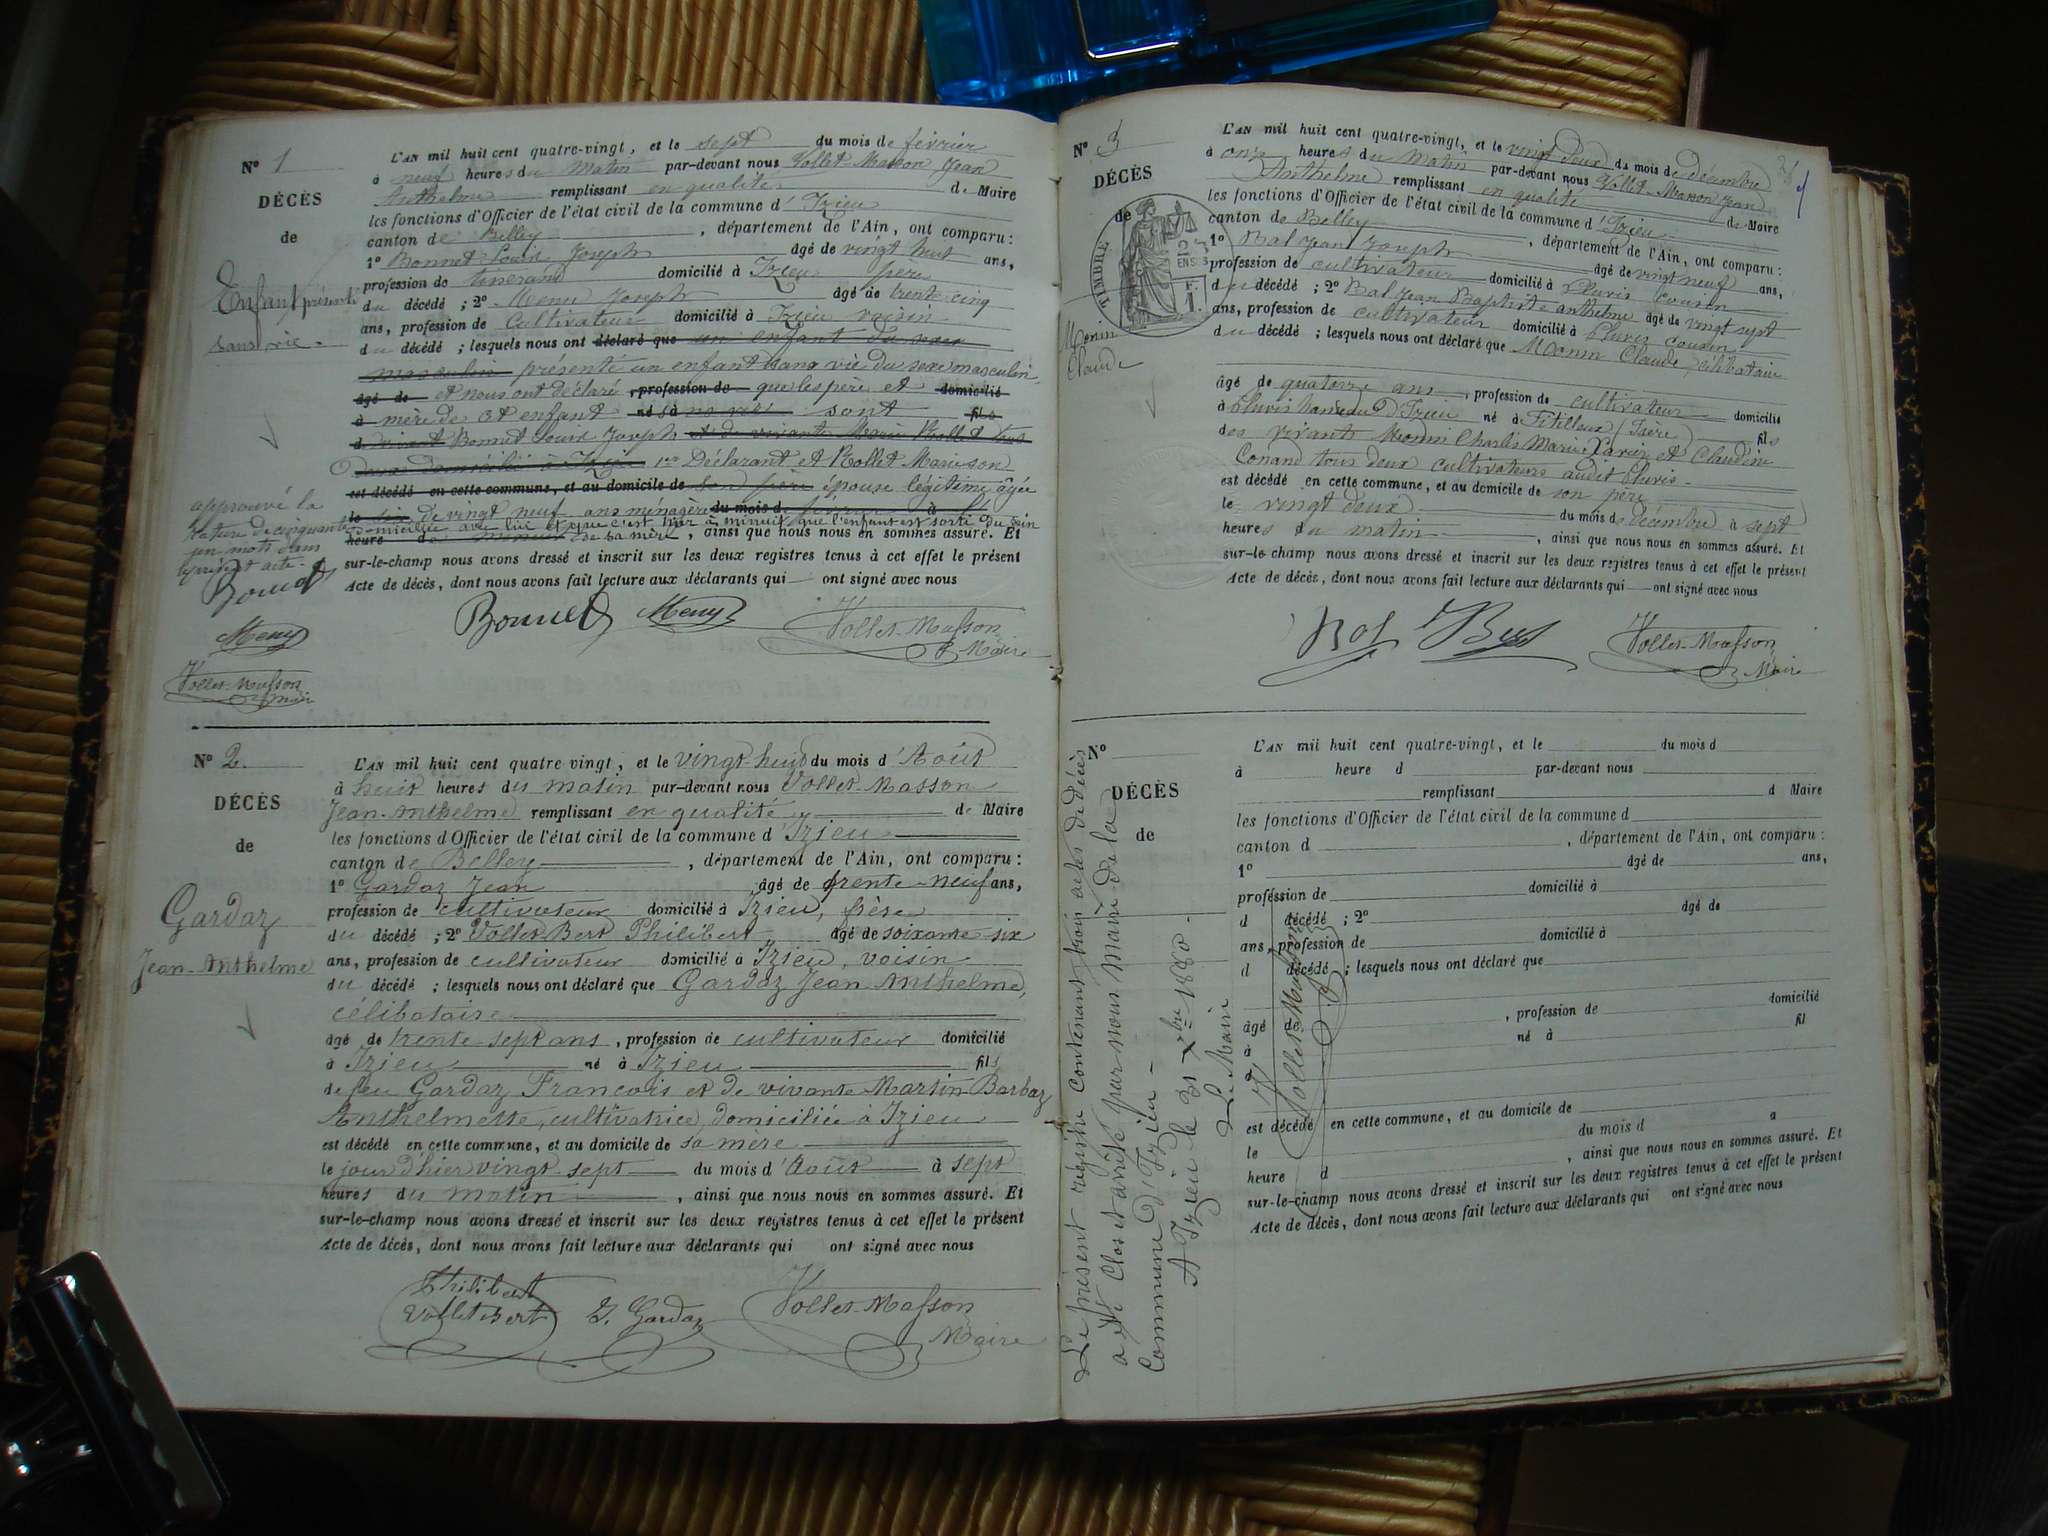 N° 1
DÉCÈS
de
Enfant présenté
sans vie.
approuvé la
rature de cinquante
un mots dans
le présent acte.
Bonnet
Meny
Vollet-Masson
maire
L'AN mil huit cent quatre-vingt, et le sept du mois de février
à neuf heures du matin par-devant nous Vollet-Masson Jean
Anthelme remplissant en qualité de Maire
les fonctions d'Officier de l'état civil de la commune d'Izieu
canton de Belley, département de l'Ain, ont comparu :
1° Bonnet Louis Joseph âgé de vingt huit ans,
profession de domicilié à Izieu père
du décédé ; 2° Meny Joseph âgé de trente cinq
ans, profession de cultivateur domicilié à Izieu voisin
du décédé ; lesquels nous ont déclaré que un enfant du sexe
masculin présenté un enfant sans vie du sexe masculin
âgé de et nous ont déclaré profession de que les père et domicilié
à mère de cet enfant né à sont fils
d Bonnet Louis Joseph et de vivante Marie Rollet tous
deux domiciliés à Izieu 1er Déclarant et Rollet Marie son
est décédé en cette commune, et au domicile de son père épouse légitime âgée
le de vingt neuf ans ménagère du mois de février à
domiciliée avec lui et que c'est hier à minuit que l'enfant est sorti du sein
heure de de sa mère, ainsi que nous nous en sommes assuré. Et
sur-le-champ nous avons dressé et inscrit sur les deux registres tenus à cet effet le présent
Acte de décès, dont nous avons fait lecture aux déclarants qui ont signé avec nous
Bonnet Meny Vollet-Masson
Maire
N° 2.
DÉCÈS
de
Gardaz
Jean-Anthelme
L'AN mil huit cent quatre vingt, et le vingt-huit du mois d'Août
à huit heures du matin par-devant nous Vollet-Masson
Jean-Anthelme remplissant en qualité de Maire
les fonctions d'Officier de l'état civil de la commune d'Izieu
canton de Belley, département de l'Ain, ont comparu :
1° Gardaz Jean âgé de trente-neuf ans,
profession de cultivateur domicilié à Izieu, frère
du décédé ; 2° Vollet-Bert Philibert âgé de soixante-six
ans, profession de cultivateur domicilié à Izieu, voisin
du décédé ; lesquels nous ont déclaré que Gardaz Jean Anthelme,
célibataire
âgé de trente-sept ans, profession de cultivateur domicilié
à Izieu né à Izieu fils
de feu Gardaz François et de vivante Martin-Barbaz
Anthelmette, cultivatrice, domiciliée à Izieu
est décédé en cette commune, et au domicile de sa mère
le jour d'hier vingt-sept du mois d'Août à sept
heures du matin, ainsi que nous nous en sommes assuré. Et
sur-le-champ nous avons dressé et inscrit sur les deux registres tenus à cet effet le présent
Acte de décès, dont nous avons fait lecture aux déclarants qui ont signé avec nous
Philibert
Vollet Bert J. Gardaz Vollet-Masson
Maire
N° 3
DÉCÈS
de
TIMBRE
Monin
Claude
L'AN mil huit cent quatre-vingt, et le vingt deux du mois de décembre
à onze heures du matin par-devant nous Vollet-Masson Jean
Anthelme remplissant en qualité de Maire
les fonctions d'Officier de l'état civil de la commune d'Izieu
canton de Belley, département de l'Ain, ont comparu :
1° Bal Jean Joseph âgé de vingt neuf ans,
profession de cultivateur domicilié à Pluvis cousin
du décédé ; 2° Bal Jean Baptiste anthelme âgé de vingt sept
ans, profession de cultivateur domicilié à Pluvis cousin
du décédé ; lesquels nous ont déclaré que Monin Claude, célibataire
âgé de quatorze ans, profession de cultivateur domicilié
à Pluvis hameau d'Izieu né à Fitilleux (Isère) fils
des vivants Monin Charles Marie Xavier et Claudine
Conand tous deux cultivateurs audit Pluvis
est décédé en cette commune, et au domicile de son père
le vingt deux du mois de décembre à sept
heures du matin, ainsi que nous nous en sommes assuré. Et
sur-le-champ nous avons dressé et inscrit sur les deux registres tenus à cet effet le présent
Acte de décès, dont nous avons fait lecture aux déclarants qui ont signé avec nous
Bal Vollet-Masson
Maire
N°
DÉCÈS
de
L'AN mil huit cent quatre-vingt, et le du mois d
à heure d par-devant nous
remplissant d Maire
les fonctions d'Officier de l'état civil de la commune d
canton d, département de l'Ain, ont comparu :
1° âgé de ans,
profession de domicilié à
d décédé ; 2° âgé de
ans, profession de domicilié à
d décédé ; lesquels nous ont déclaré que
âgé de, profession de domicilié
à né à fil
d
est décédé en cette commune, et au domicile de
le du mois d à
heure d, ainsi que nous nous en sommes assuré. Et
sur-le-champ nous avons dressé et inscrit sur les deux registres tenus à cet effet le présent
Acte de décès, dont nous avons fait lecture aux déclarants qui ont signé avec nous
Le présent registre contenant trois actes de décès
a été clos et arrêté par nous Maire de la
Commune d'Izieu -
A Izieu le 31 Xbre 1880.
Le Maire
Vollet-Masson